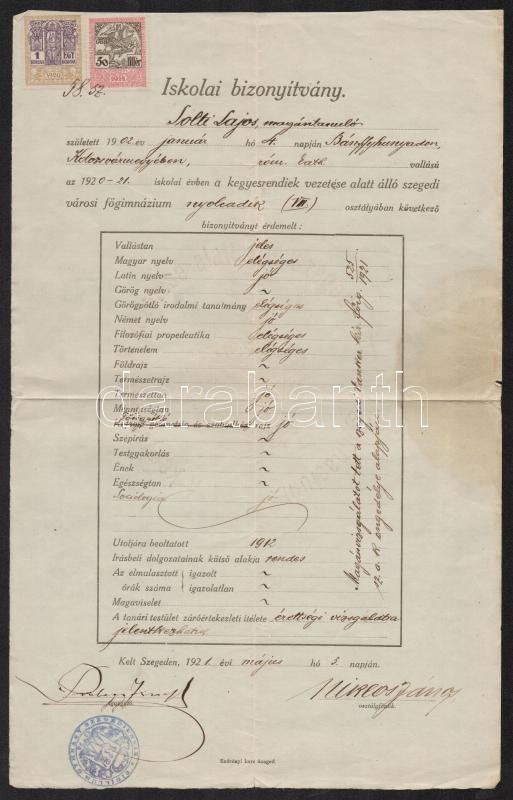 1 EGY
KORONA
1920
50 fillér
58. sz.
Iskolai bizonyítvány.
Solti Lajos, magántanuló
született 1902 év január hó 4. napján Bánffyhunyadon,
Kolozsvármegyében, róm. kath. vallású
az 1920-21. iskolai évben a kegyesrendiek vezetése alatt álló szegedi
városi főgimnázium nyolcadik (VIII) osztályában következő
bizonyítványt érdemelt:
Vallástan jeles
Magyar nyelv elégséges
Latin nyelv jó
Görög nyelv ~
Görögpótló irodalmi tanulmány elégséges
Német nyelv jó
Filozófiai propedeutika elégséges
Történelem elégséges
Földrajz ~
Természetrajz ~
Természettan jó
Mennyiségtan jó
rajz jó
Szépírás ~
Testgyakorlás ~
Ének ~
Egészségtan ~
Sociologia jó
Magánvizsgálatot tett a szegedi tanker. kir. főig. 525
1921 sz. a. k. engedélye alapján.
Utoljára beoltatott 1912
Írásbeli dolgozatainak külső alakja rendes
Az elmulasztott igazolt ~
órák száma = igazolatlan ~
Magaviselet ~
A tanári testület záróértekezleti ítélete érettségi vizsgálatra
jelentkezhetik
Kelt Szegeden, 1921. évi május hó 3. napján.
Miklós János
osztályfőnök.
Endrényi Imre Szeged
darabanth